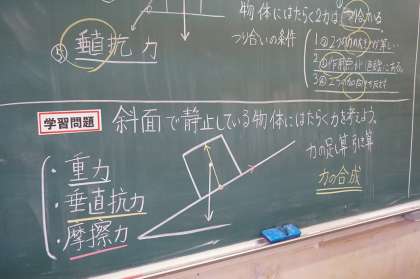 ⑤ 垂直抗力
物体にはたらく2力は つりあう
つり合いの条件
1 ②2つの力の大きさが等しい
2
3 ②2つの力の向きが
学習問題 斜面で静止している物体にはたらく力を考えよう。
・重力
・垂直抗力
・摩擦力
力の足し算 引き算
力の合成